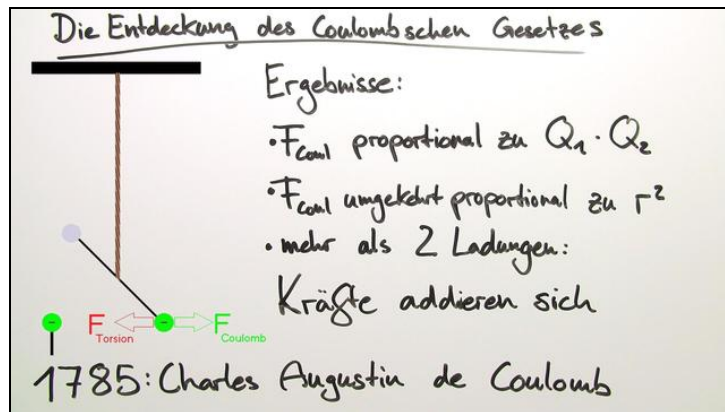 Die Entdeckung des Coulombschen Gesetzes
Ergebnisse:
• F_Coul proportional zu Q₁ · Q₂
• F_Coul umgekehrt proportional zu r²
• mehr als 2 Ladungen:
Kräfte addieren sich
F_Torsion F_Coulomb
1785: Charles Augustin de Coulomb